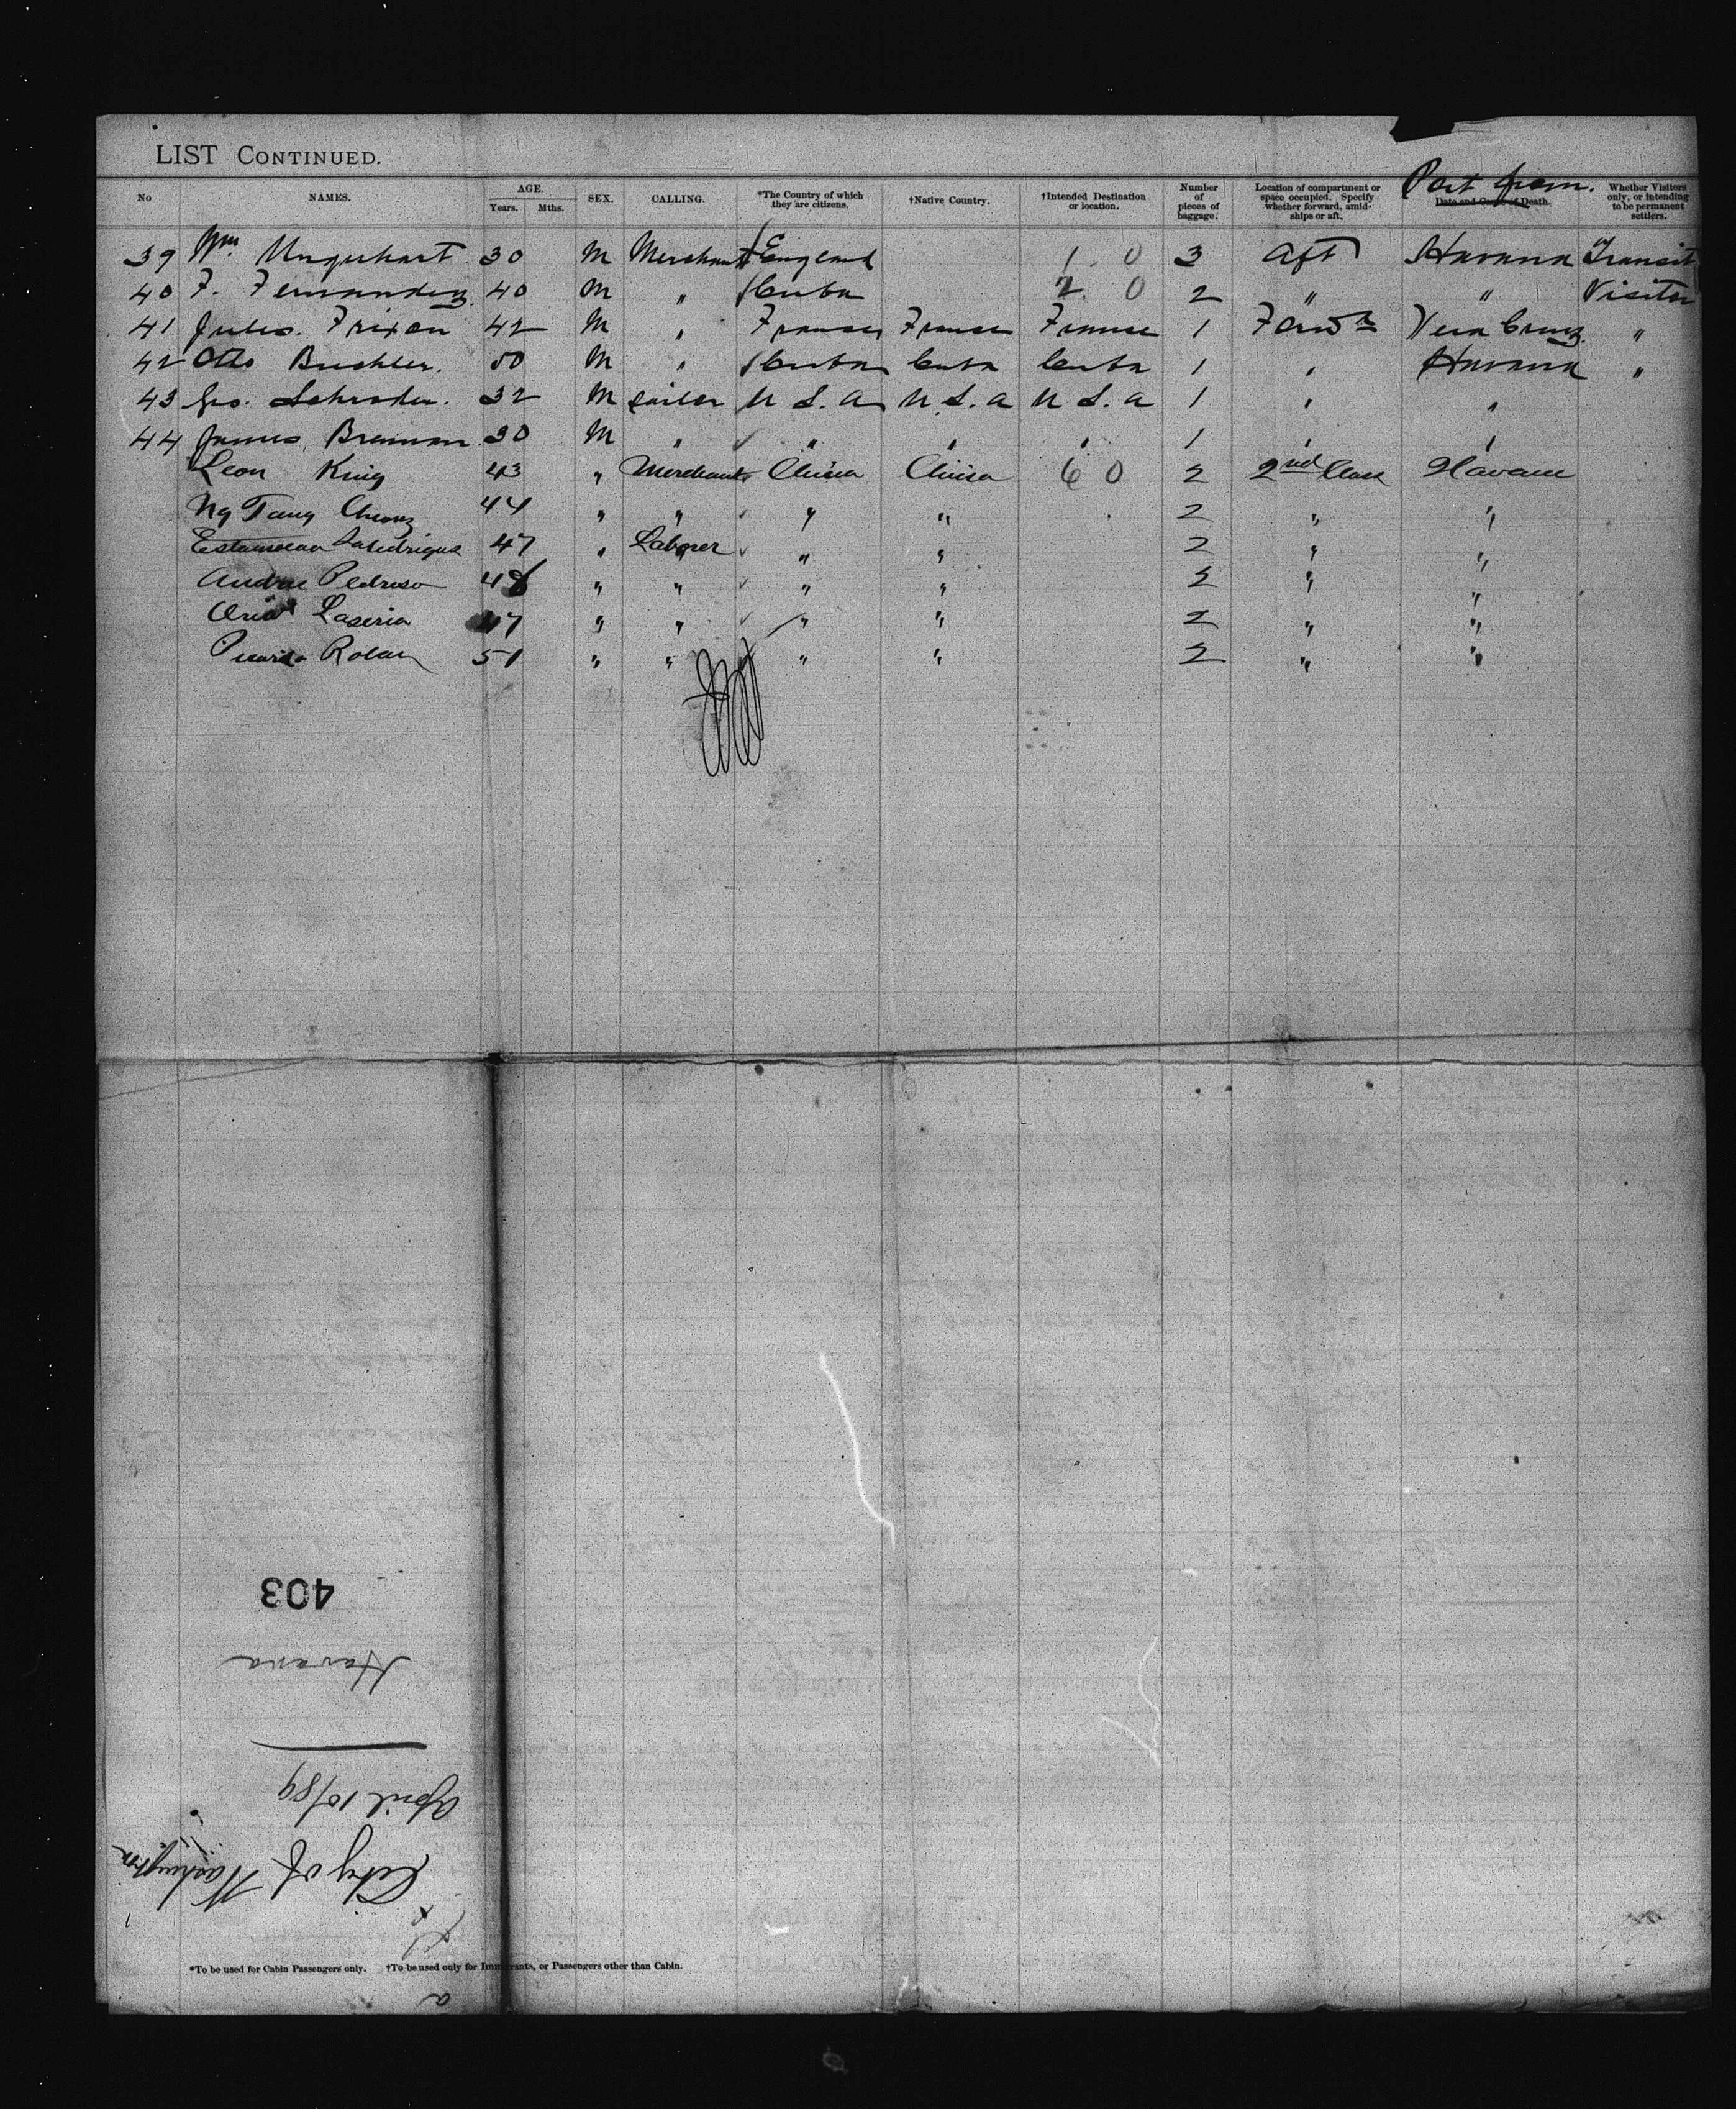 LIST CONTINUED.
No NAMES. AGE. Years. Mths. SEX. CALLING. *The Country of which they are citizens. †Native Country. †Intended Destination or location. Number of pieces of baggage. Location of compartment or space occupied. Specify whether forward, amidships or aft. Port from. Date and Cause of Death. Whether Visitors only, or intending to be permanent settlers.
39 Wm Urquhart 30 M Merchant England 1 0 3 Aft Havana Transit
40 F. Fernandez 40 M " Cuba 2 0 2 " " Visitor
41 Jules Frixon 42 M " France France France 1 Forwd Vera Cruz "
42 Otto Buchler. 50 M " Cuba Cuba Cuba 1 " Havana "
43 Geo. Schroder. 32 M sailor U S. A U. S. A U S. A 1 " "
44 James Brennan 30 M " " " " 1 " "
Leon King 43 " Merchant China China 6 0 2 2nd Class Havana
Ng Tang Cheong 44 " " " " 2 " "
47 " Laborer " " 2 " "
Andrae Pedroso 48 " " " " 2 " "
Laseria 47 " " " " 2 " "
51 " " " " 2 " "
403
Havana
April 10/89
City of Washington
*To be used for Cabin Passengers only. †To be used only for Immigrants, or Passengers other than Cabin.